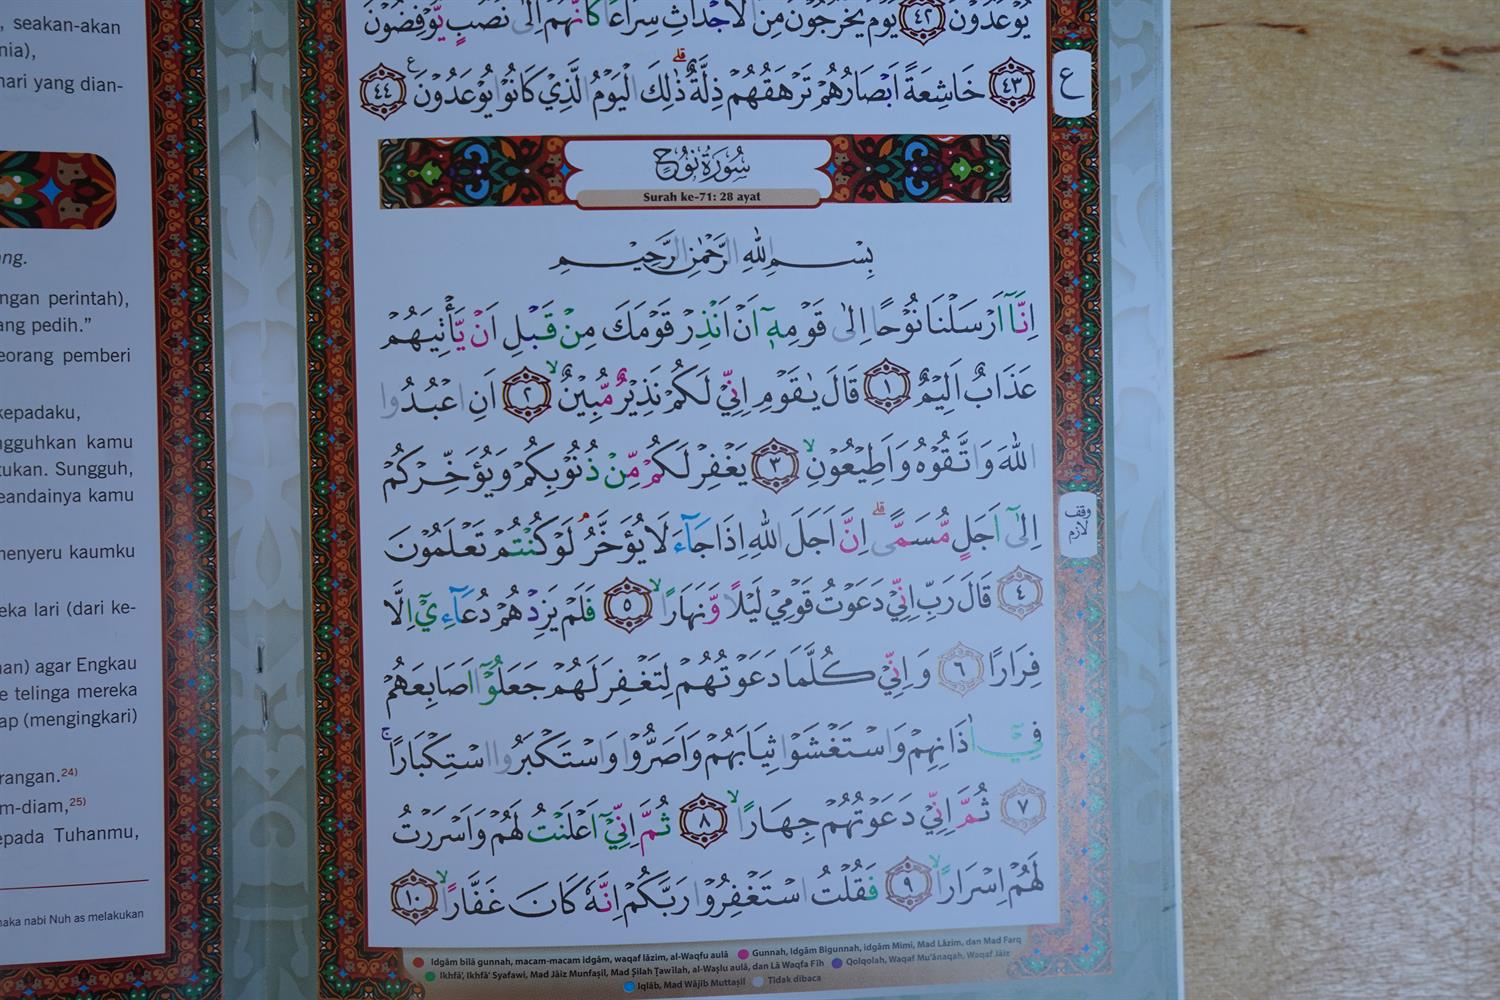 , seakan-akan
nia),
hari yang dian-
ang.
ngan perintah),
ang pedih.”
eorang pemberi
kepadaku,
ngguhkan kamu
tukan. Sungguh,
eandainya kamu
menyeru kaumku
eka lari (dari ke-
an) agar Engkau
e telinga mereka
ap (mengingkari)
rangan.24)
m-diam,25)
epada Tuhanmu,
naka nabi Nuh as melakukan
يُوْعَدُوْنَ ٤٢ يَوْمَ يَخْرُجُوْنَ مِنَ الْاَجْدَاثِ سِرَاعًا كَاَنَّهُمْ اِلٰى نُصُبٍ يُّوْفِضُوْنَ
٤٣ خَاشِعَةً اَبْصَارُهُمْ تَرْهَقُهُمْ ذِلَّةٌ ۗذٰلِكَ الْيَوْمُ الَّذِيْ كَانُوْا يُوْعَدُوْنَ ࣖ ٤٤
ع
سُوْرَةُ نُوْحٍ
Surah ke-71: 28 ayat
بِسْمِ اللّٰهِ الرَّحْمٰنِ الرَّحِيْمِ
اِنَّآ اَرْسَلْنَا نُوْحًا اِلٰى قَوْمِهٖٓ اَنْ اَنْذِرْ قَوْمَكَ مِنْ قَبْلِ اَنْ يَّأْتِيَهُمْ
عَذَابٌ اَلِيْمٌ ١ قَالَ يٰقَوْمِ اِنِّيْ لَكُمْ نَذِيْرٌ مُّبِيْنٌۙ ٢ اَنِ اعْبُدُوا
اللّٰهَ وَاتَّقُوْهُ وَاَطِيْعُوْنِۙ ٣ يَغْفِرْ لَكُمْ مِّنْ ذُنُوْبِكُمْ وَيُؤَخِّرْكُمْ
اِلٰٓى اَجَلٍ مُّسَمًّىۗ اِنَّ اَجَلَ اللّٰهِ اِذَا جَاۤءَ لَا يُؤَخَّرُۘ لَوْ كُنْتُمْ تَعْلَمُوْنَ
وقف لازم
٤ قَالَ رَبِّ اِنِّيْ دَعَوْتُ قَوْمِيْ لَيْلًا وَّنَهَارًاۙ ٥ فَلَمْ يَزِدْهُمْ دُعَاۤءِيْٓ اِلَّا
فِرَارًا ٦ وَاِنِّيْ كُلَّمَا دَعَوْتُهُمْ لِتَغْفِرَ لَهُمْ جَعَلُوْٓا اَصَابِعَهُمْ
فِيْٓ اٰذَانِهِمْ وَاسْتَغْشَوْا ثِيَابَهُمْ وَاَصَرُّوْا وَاسْتَكْبَرُوا اسْتِكْبَارًاۚ
٧ ثُمَّ اِنِّيْ دَعَوْتُهُمْ جِهَارًاۙ ٨ ثُمَّ اِنِّيْٓ اَعْلَنْتُ لَهُمْ وَاَسْرَرْتُ
لَهُمْ اِسْرَارًاۙ ٩ فَقُلْتُ اسْتَغْفِرُوْا رَبَّكُمْ اِنَّهٗ كَانَ غَفَّارًاۙ ١٠
Idgām bilā gunnah, macam-macam idgām, waqaf lāzim, al-Waqfu aulā Gunnah, Idgām Bigunnah, idgām Mimi, Mad Lāzim, dan Mad Farq
Ikhfā', Ikhfā' Syafawi, Mad Jāiz Munfaṣil, Mad Ṣilah Ṭawīlah, al-Waṣlu aulā, dan Lā Waqfa Fīh Qolqolah, Waqaf Mu'ānaqah, Waqaf Jāiz
Iqlāb, Mad Wājib Muttaṣil Tidak dibaca